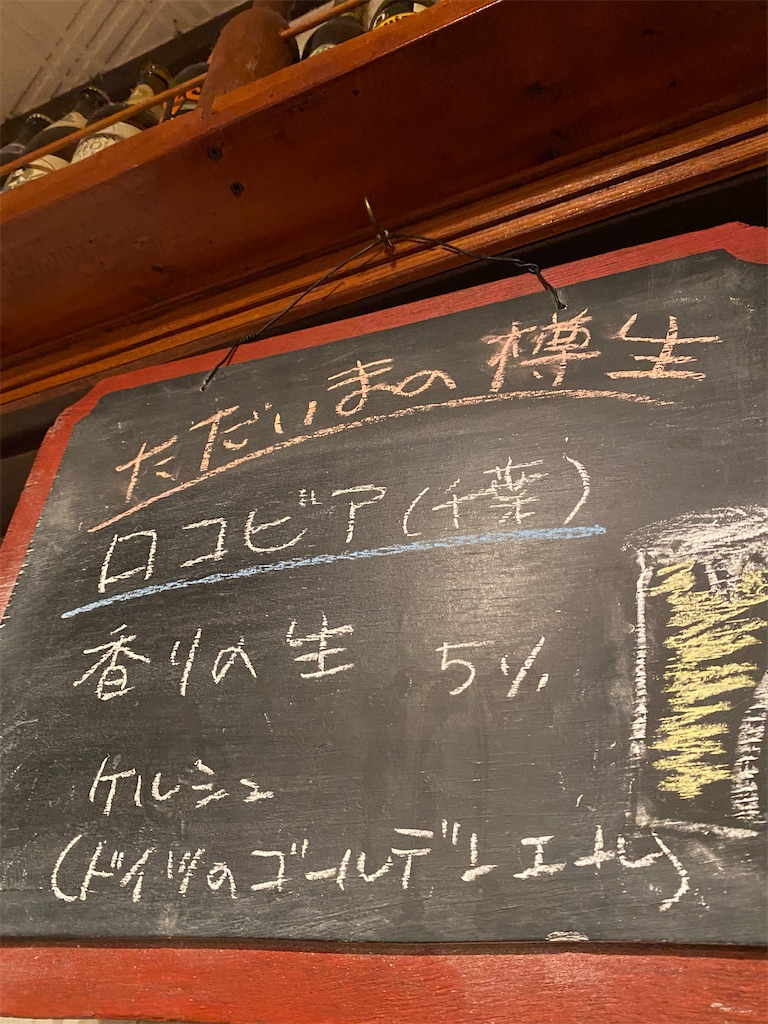 ただいまの樽生
ロコビア(千葉)
香りの生 5%
ケルシュ
(ドイツのゴールデンエール)